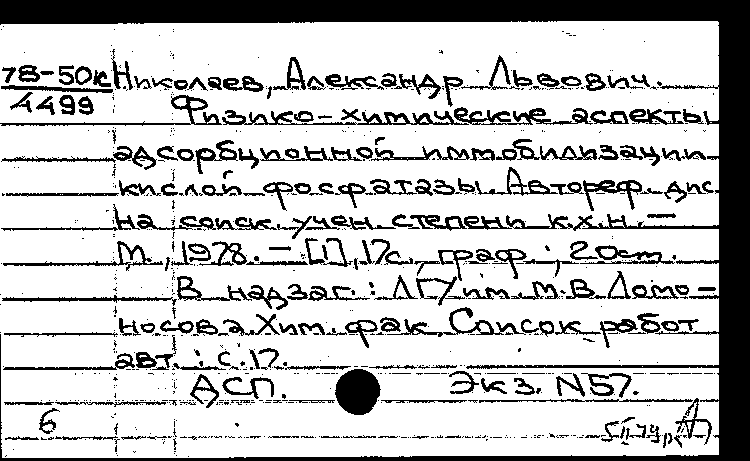 78-50к Николаев, Александр Львович.
4499 Физико-химические аспекты
адсорбционной иммобилизации
кислой фосфатазы. Автореф. дис.
на соиск. учен. степени к.х.н. —
М., 1978. — [1], 17с., граф.; 20см.
В надзаг.: ЛГУ им. М.В. Ломо-
носова. Хим. фак. Список работ
авт.: с. 17.
ДСП. Экз. N57.
6